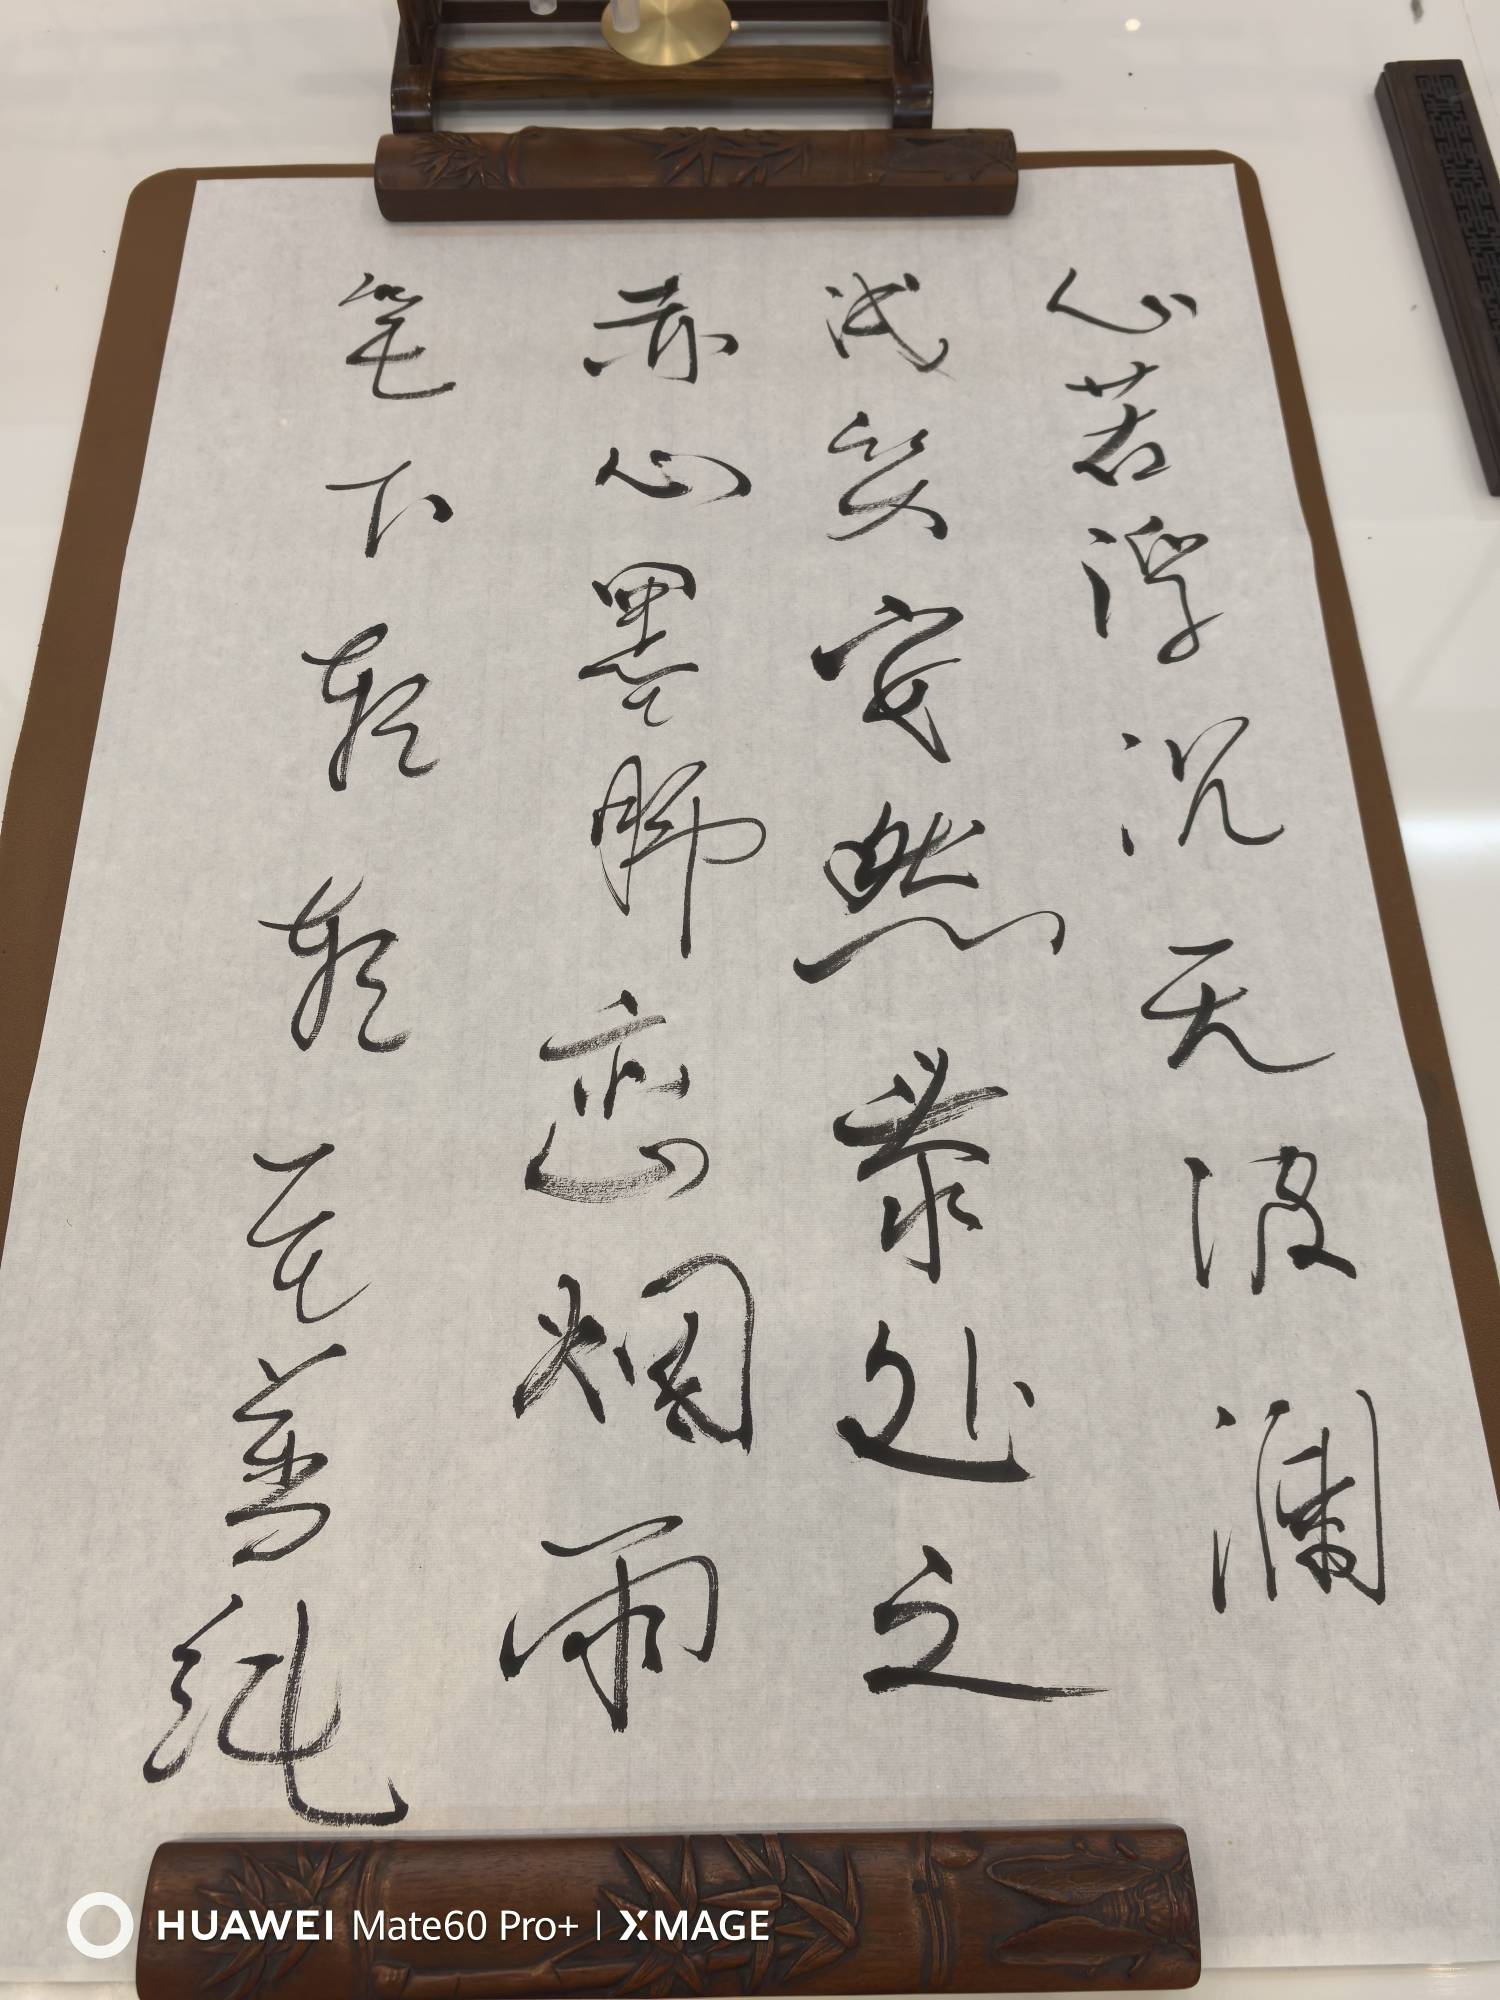 心若浮沉无波澜
浅笑安然处之
赤心墨师恋烟雨
笔下轻轻至善纯
HUAWEI Mate60 Pro+ | XMAGE